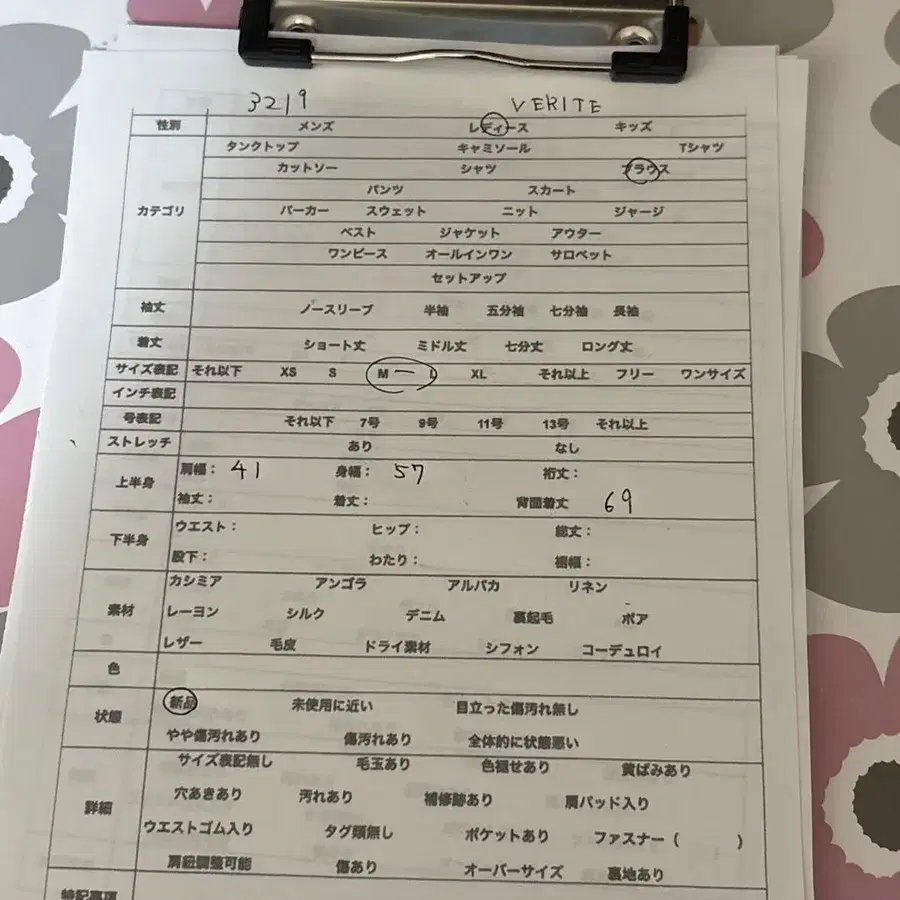 3219 VERITE
性別 メンズ レディース キッズ
タンクトップ キャミソール Tシャツ
カットソー シャツ ブラウス
パンツ スカート
カテゴリ パーカー スウェット ニット ジャージ
ベスト ジャケット アウター
ワンピース オールインワン サロペット
セットアップ
袖丈 ノースリーブ 半袖 五分袖 七分袖 長袖
着丈 ショート丈 ミドル丈 七分丈 ロング丈
サイズ表記 それ以下 XS S M ー L XL それ以上 フリー ワンサイズ
インチ表記
号表記 それ以下 7号 9号 11号 13号 それ以上
ストレッチ あり なし
上半身 肩幅： 41 身幅： 57 裄丈：
袖丈： 着丈： 背面着丈 69
下半身 ウエスト： ヒップ： 総丈：
股下： わたり： 裾幅：
カシミア アンゴラ アルパカ リネン
素材 レーヨン シルク デニム 裏起毛 ボア
レザー 毛皮 ドライ素材 シフォン コーデュロイ
色
状態 新品 未使用に近い 目立った傷汚れ無し
やや傷汚れあり 傷汚れあり 全体的に状態悪い
サイズ表記無し 毛玉あり 色褪せあり 黄ばみあり
詳細 穴あきあり 汚れあり 補修跡あり 肩パッド入り
ウエストゴム入り タグ類無し ポケットあり ファスナー（ ）
肩紐調整可能 傷あり オーバーサイズ 裏地あり
特記事項